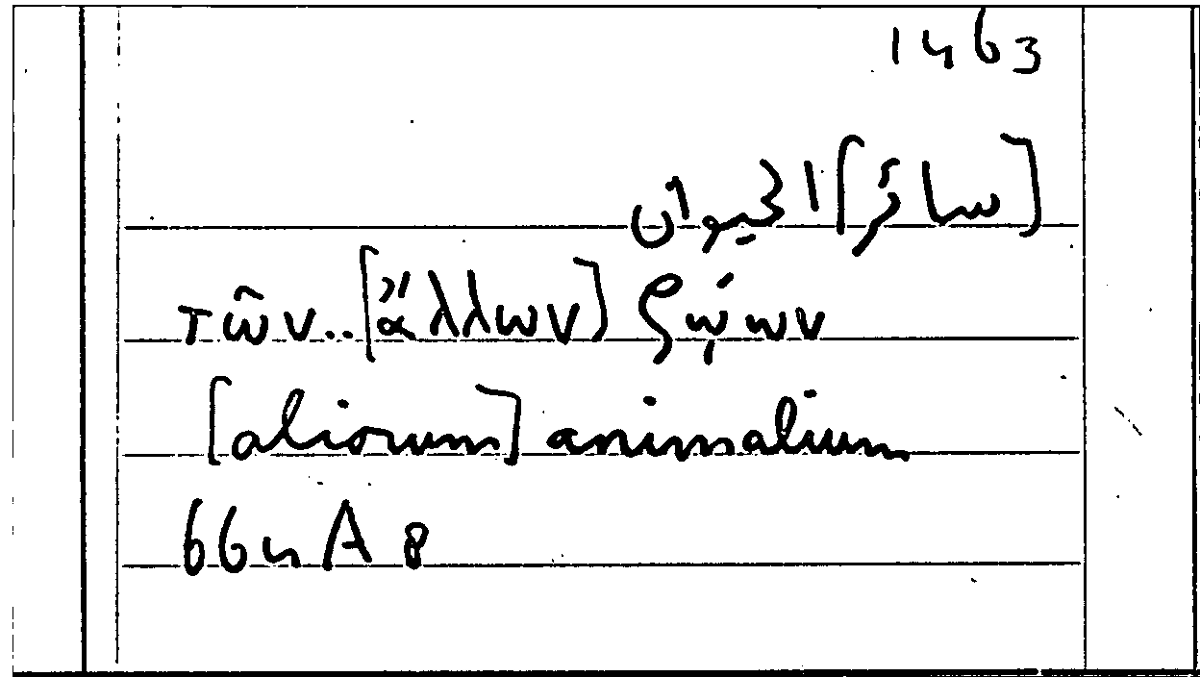 1463
[سائر] الحيوان
τῶν..[ἄλλων] ζῴων
[aliorum] animalium
664 A 8